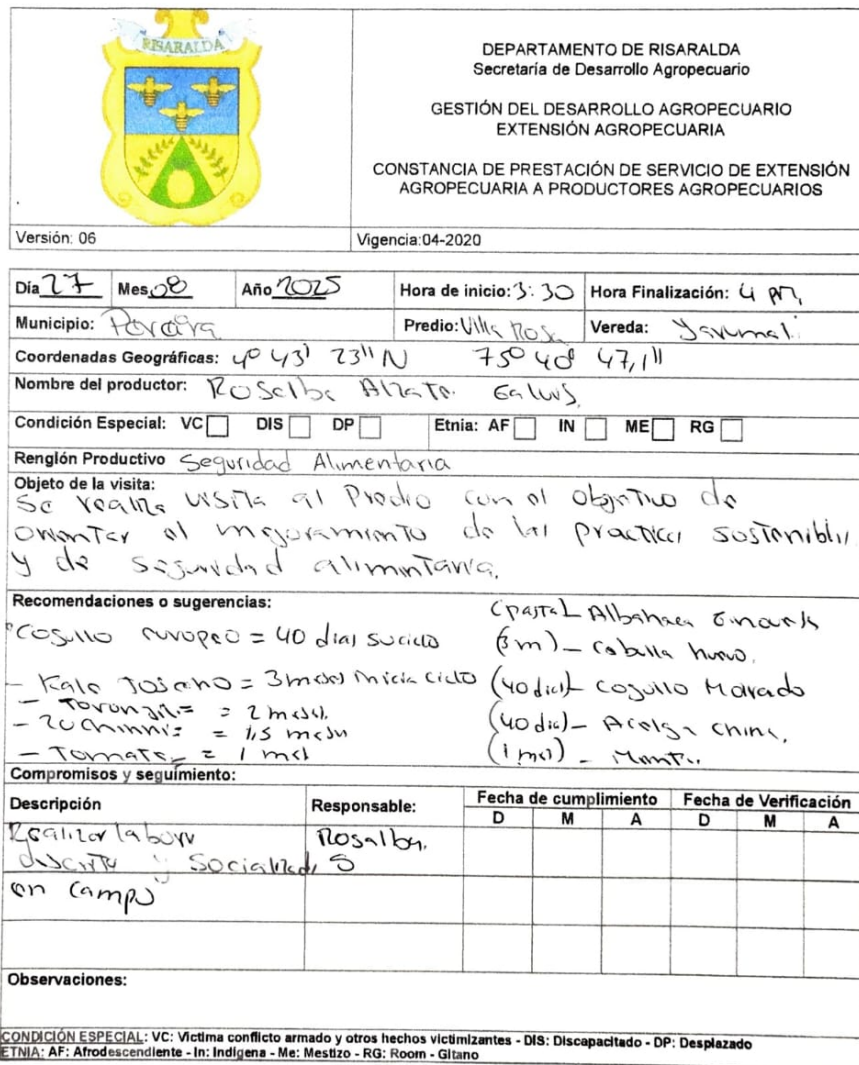 RISARALDA
DEPARTAMENTO DE RISARALDA
Secretaría de Desarrollo Agropecuario
GESTIÓN DEL DESARROLLO AGROPECUARIO
EXTENSIÓN AGROPECUARIA
CONSTANCIA DE PRESTACIÓN DE SERVICIO DE EXTENSIÓN
AGROPECUARIA A PRODUCTORES AGROPECUARIOS
Versión: 06 Vigencia:04-2020
Día 27 Mes 08 Año 2025 Hora de inicio: 3:30 Hora Finalización: 4 pm,
Municipio: Pereira Predio: Villa Rosa Vereda: Yarumal.
Coordenadas Geográficas: 4° 43' 23" N 75° 40' 47,1"
Nombre del productor: Rosalba Alzate
Condición Especial: VC DIS DP Etnia: AF IN ME RG
Renglón Productivo Seguridad Alimentaria
Objeto de la visita:
Se realiza visita al Predio con el objetivo de
orientar el mejoramiento de las practicas sostenibles
y de seguridad alimentaria.
Recomendaciones o sugerencias:
Cogollo europeo = 40 dias su ciclo
- Kale Toscano = 3 meses inicia ciclo
- Toronjil = 2 meses.
- Zuchinni = 1,5 meses
- Tomate = 1 mes
Albahaca
(3m) - Cebolla huevo.
(40 dias) - Cogollo Morado
(40 dia) - Acelga china.
(1 mes) - Menta.
Compromisos y seguimiento:
Descripción Responsable: Fecha de cumplimiento Fecha de Verificación
D M A D M A
Realizar labores Rosalba.
descrita y Socializada S
en campo
Observaciones:
CONDICIÓN ESPECIAL: VC: Victima conflicto armado y otros hechos victimizantes - DIS: Discapacitado - DP: Desplazado
ETNIA: AF: Afrodescendiente - In: Indígena - Me: Mestizo - RG: Room - Gitano